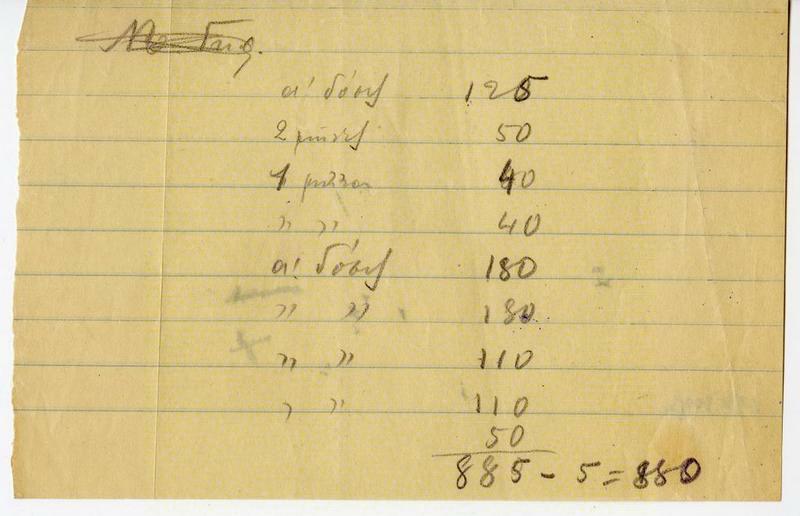 α' δόσις 125
2 μῆνες 50
1 40
" " 40
α' δόσις 180
" " 180
" " 110
" " 110
50
885 - 5 = 880